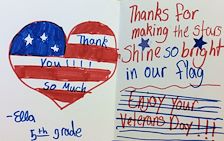 Thank
You !!!!
So Much
-Ella
5th grade
Thanks for
making the stars
Shine so bright
in our flag
Enjoy Your
Veterans Day!!!